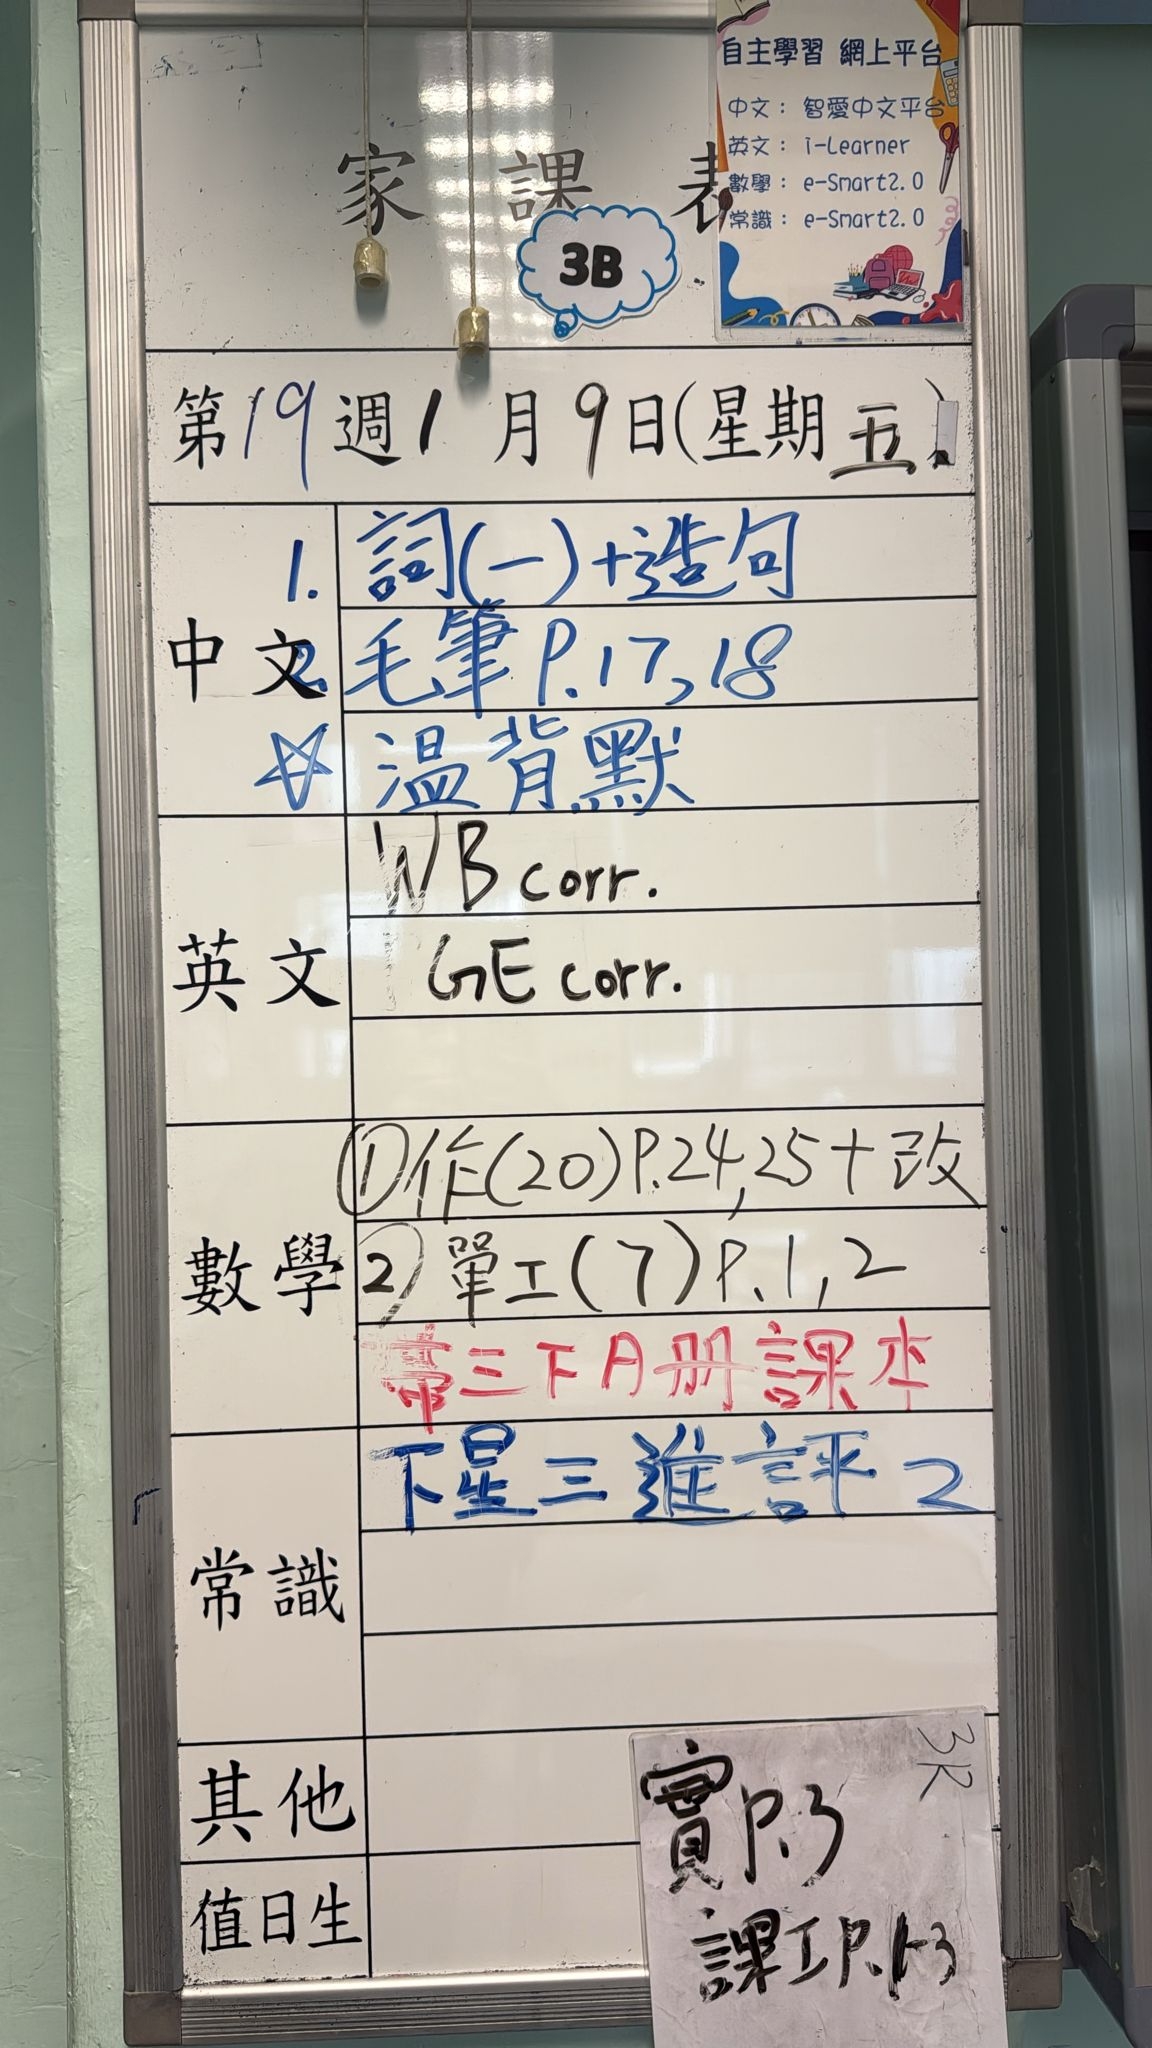 自主學習 網上平台
中文： 智愛中文平台
英文： i-Learner
數學： e-Smart2.0
常識： e-Smart2.0
家課表
3B
第19週1月9日(星期五)
中文
1. 詞(一)+造句
2. 毛筆 P.17,18
☆ 溫背默
英文
WB corr.
GE corr.
數學
① 作(20) P.24,25+改
② 單工(7) P.1,2
帶三下A冊課本
常識
下星三進評2
其他
3R
實P.3
課工P.1-3
值日生